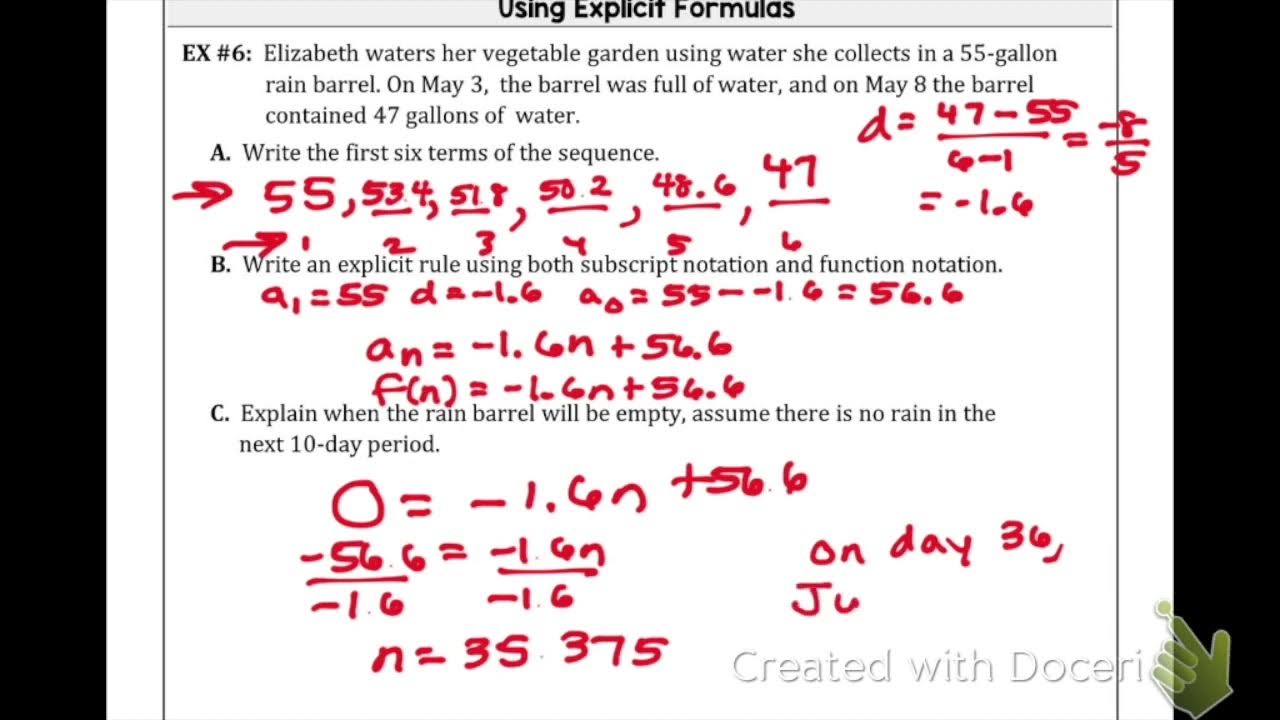 Using Explicit Formulas
EX #6: Elizabeth waters her vegetable garden using water she collects in a 55-gallon
rain barrel. On May 3, the barrel was full of water, and on May 8 the barrel
contained 47 gallons of water.
d = 47 - 55 / 6 - 1 = -8 / 5
= -1.6
A. Write the first six terms of the sequence.
→ 55, 53.4, 51.8, 50.2, 48.6, 47
→ 1 2 3 4 5 6
B. Write an explicit rule using both subscript notation and function notation.
a₁ = 55 d = -1.6 a₀ = 55 - -1.6 = 56.6
aₙ = -1.6n + 56.6
f(n) = -1.6n + 56.6
C. Explain when the rain barrel will be empty, assume there is no rain in the
next 10-day period.
0 = -1.6n + 56.6
-56.6 / -1.6 = -1.6n / -1.6
n = 35.375
on day 36,
Ju
Created with Doceri